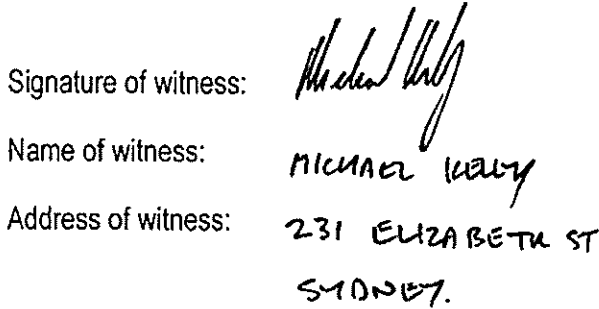 Signature of witness: Michael Kelly
Name of witness: MICHAEL KELLY
Address of witness: 231 ELIZABETH ST
SYDNEY.